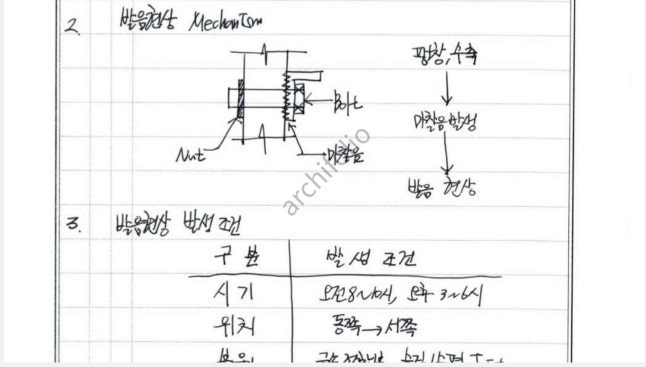 2. 발음현상 Mechanism
팽창, 수축
Bolt
마찰음 발생
Nut
마찰음
발음 현상
archifolio
3. 발음현상 발생 조건
구분 발생 조건
시기 오전 8~10시, 오후 3~6시
위치 동쪽 → 서쪽
부위